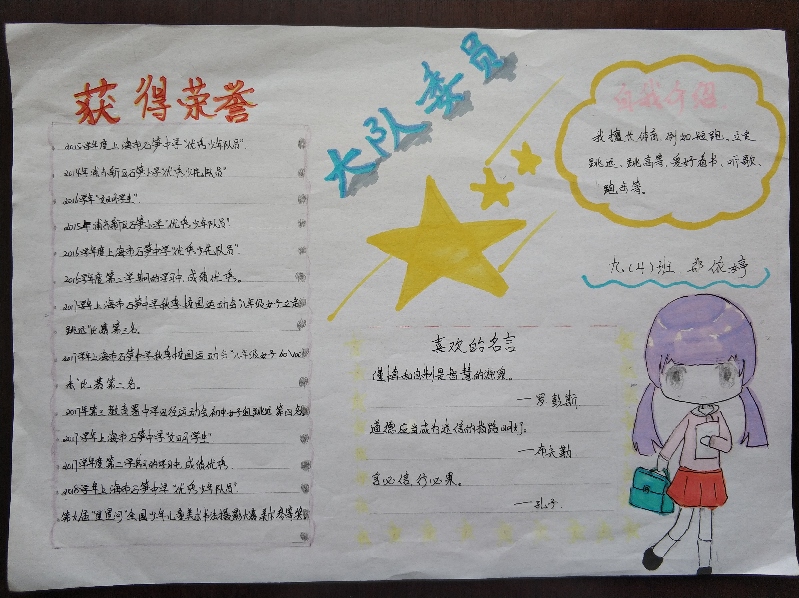 获得荣誉
2015学年度上海市石笋中学"优秀少年队员".
2014年浦东新区石笋小学"优秀少先队员"
2016学年"文明学生".
2015年浦东新区石笋小学"优秀少年队员"
2016学年度上海市石笋中学"优秀少先队员".
2016学年度第二学期的学习中,成绩优秀。
2017学年上海市石笋中学秋季校园运动会"八年级女子立定
跳远"比赛第二名。
2017学年上海市石笋中学秋季校园运动会"八年级女子
赛"比赛第二名。
2017年第三教育署中学田径运动会初中女子组跳远 第四名
2017学年上海市石笋中学"文明学生"
2017学年度第二学期的学习中,成绩优秀.
2018学年上海市石笋中学"优秀少年队员"
第九届"星星河"全国少年儿童美术书法摄影大赛 美术 叁等奖
大队委员
自我介绍
我擅长体育,例如短跑、立定
跳远、跳高等,爱好看书、听歌、
跑步等。
九(4)班 郭依婷
喜欢的名言
谨慎和自制是智慧的源泉。
——罗彭斯
道德应当成为迷信的指路明灯。
——布瓦勒
言必信,行必果。
——孔子